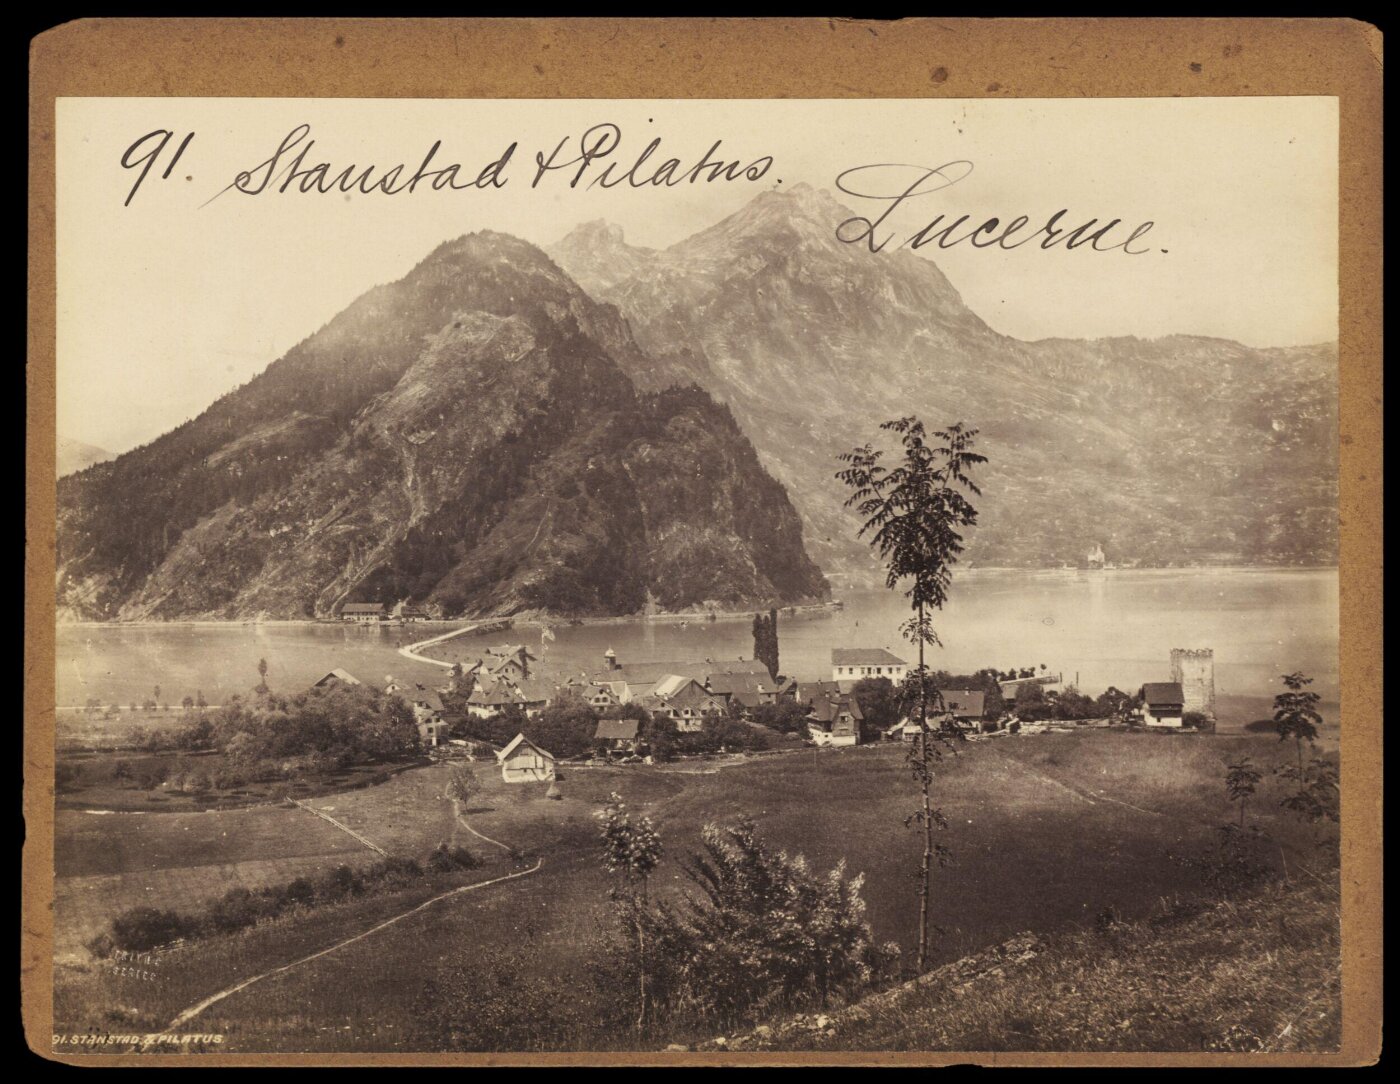 91. Stanstad & Pilatus.
Lucerne.
FRITH'S
SERIES
91. STANSTAD & PILATUS